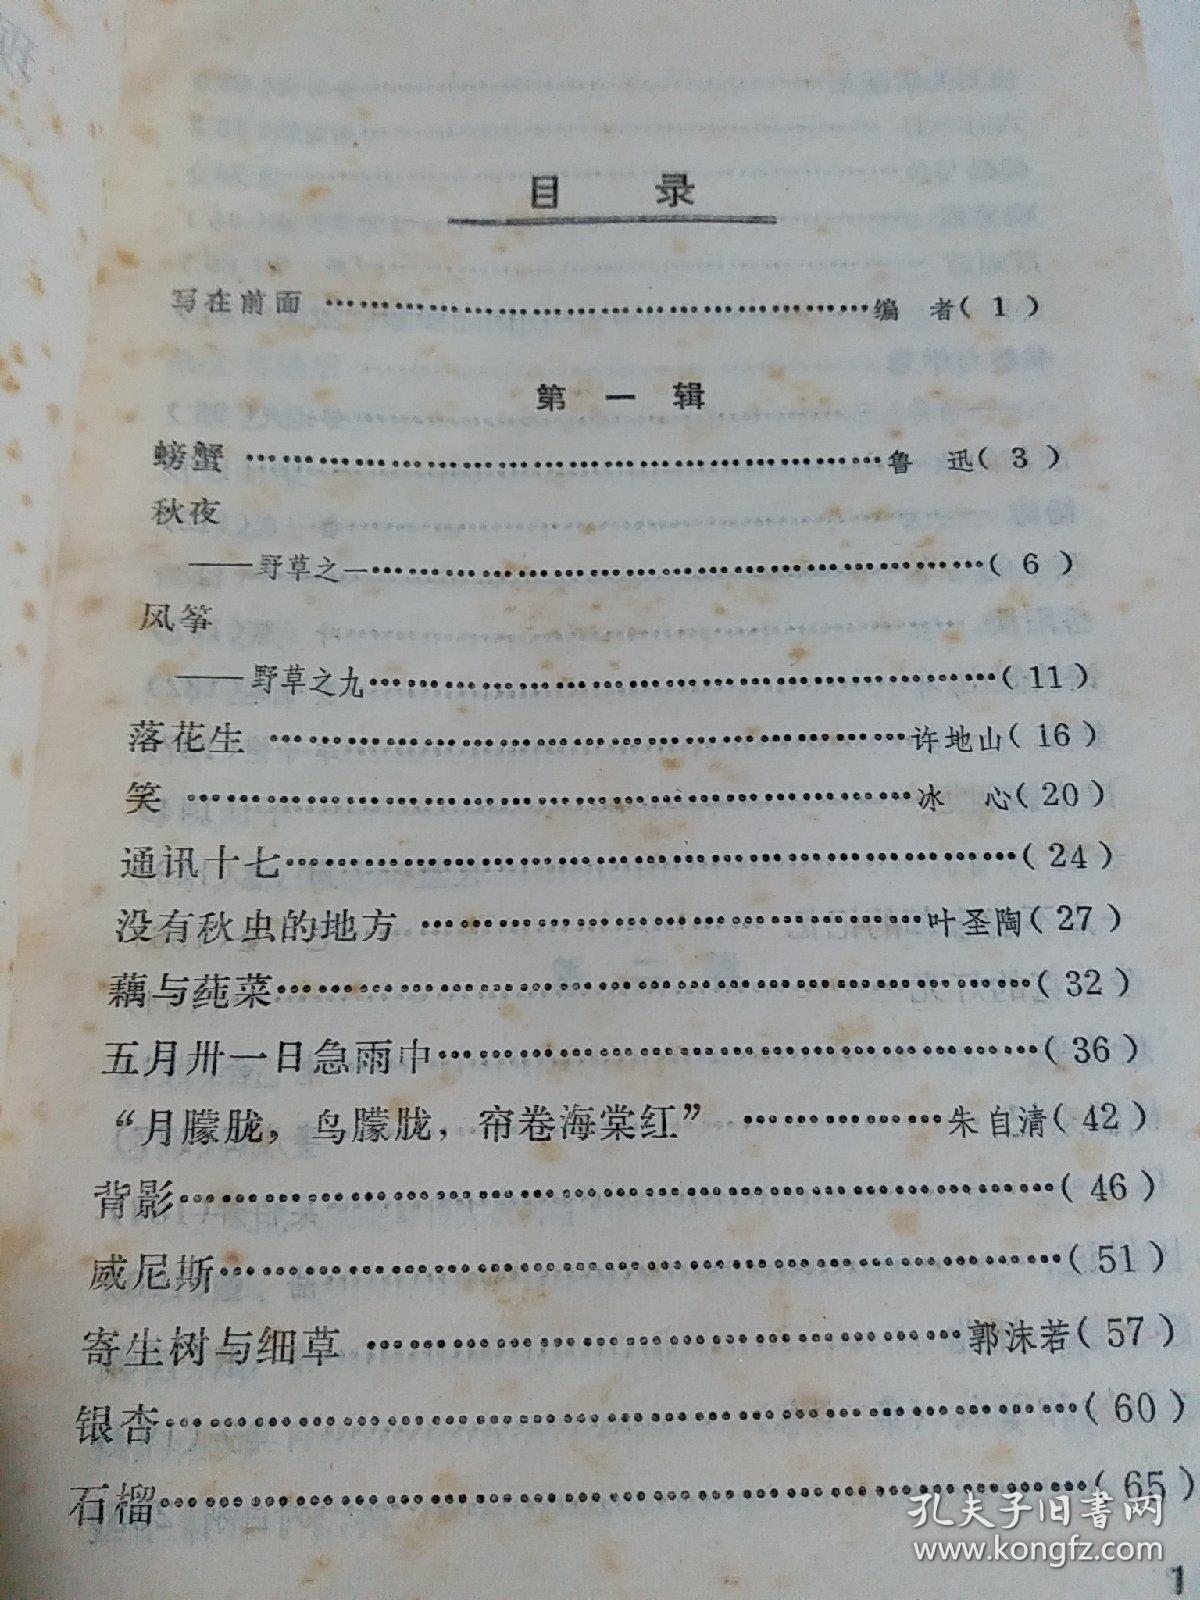 目 录
写在前面 …………………………………………编 者( 1 )
第 一 辑
螃蟹 …………………………………………………鲁 迅( 3 )
秋夜
——野草之一…………………………………………( 6 )
风筝
——野草之九…………………………………………( 11 )
落花生 ………………………………………………许地山( 16 )
笑 ……………………………………………………冰 心( 20 )
通讯十七………………………………………………( 24 )
没有秋虫的地方 ……………………………………叶圣陶( 27 )
藕与莼菜………………………………………………( 32 )
五月卅一日急雨中……………………………………( 36 )
“月朦胧，鸟朦胧，帘卷海棠红” ………………朱自清( 42 )
背影……………………………………………………( 46 )
威尼斯…………………………………………………( 51 )
寄生树与细草 ………………………………………郭沫若( 57 )
银杏……………………………………………………( 60 )
石榴……………………………………………………( 65 )
孔夫子旧书网
www.kongfz.com
1